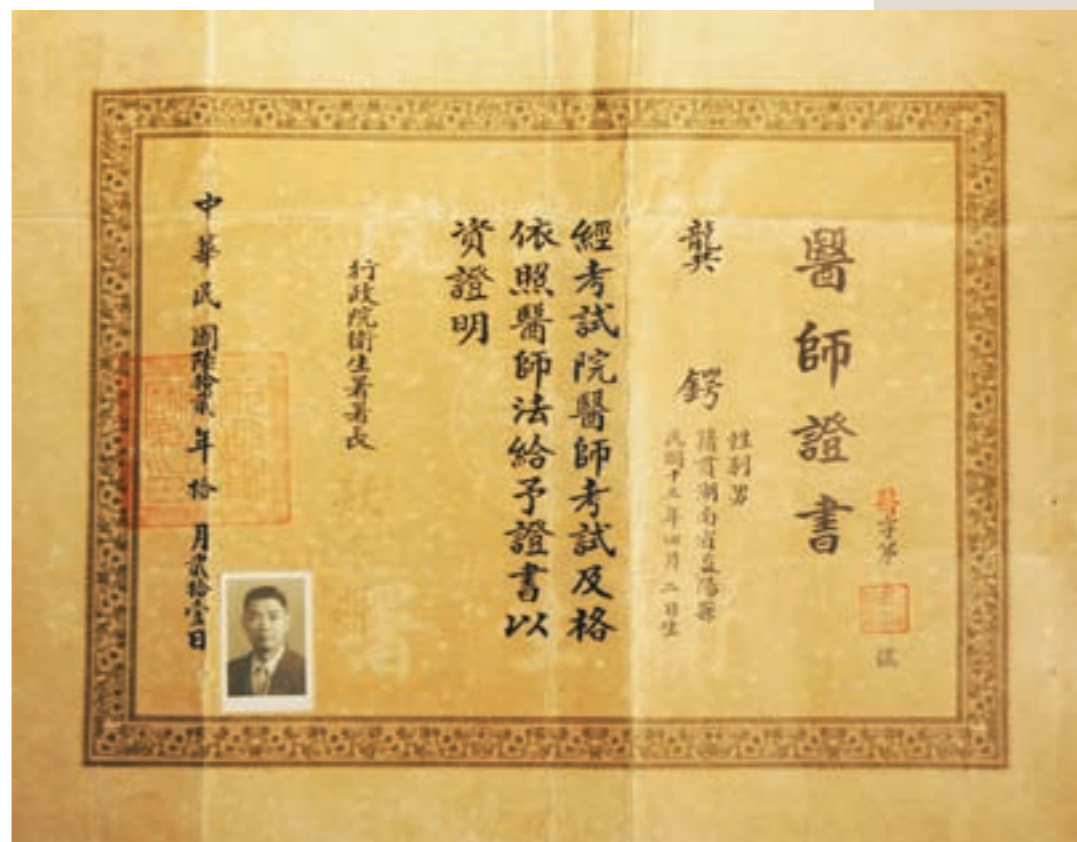 醫師證書
醫字第
號
龔 鍔
性別男
籍貫湖南省益陽縣
民國十五年四月二日生
經考試院醫師考試及格
依照醫師法給予證書以
資證明
行政院衛生署署長
中華民國陸拾貳年拾月貳拾壹日